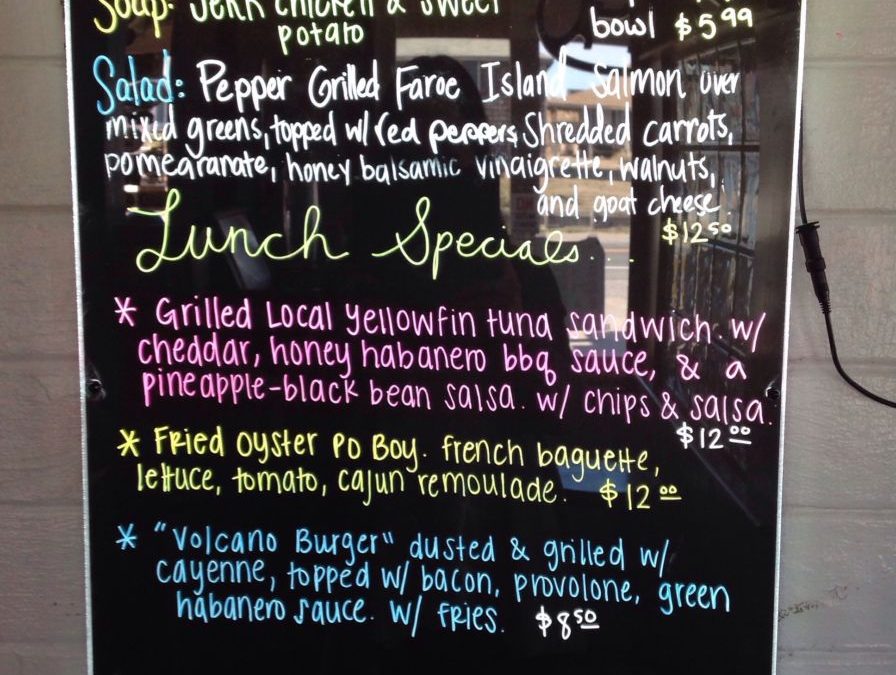 Soup: Jerk chicken & sweet
potato
bowl $5.99
Salad: Pepper Grilled Faroe Island Salmon over
mixed greens, topped w/ red peppers, shredded carrots,
pomearanate, honey balsamic vinaigrette, walnuts,
and goat cheese.
$12.50
Lunch Specials...
* Grilled Local yellowfin tuna sandwich w/
cheddar, honey habanero bbq sauce, & a
pineapple-black bean salsa. w/ chips & salsa.
$12.00
* Fried Oyster Po Boy. french baguette,
lettuce, tomato, cajun remoulade. $12.00
* "Volcano Burger" dusted & grilled w/
cayenne, topped w/ bacon, provolone, green
habanero sauce. w/ fries. $8.50